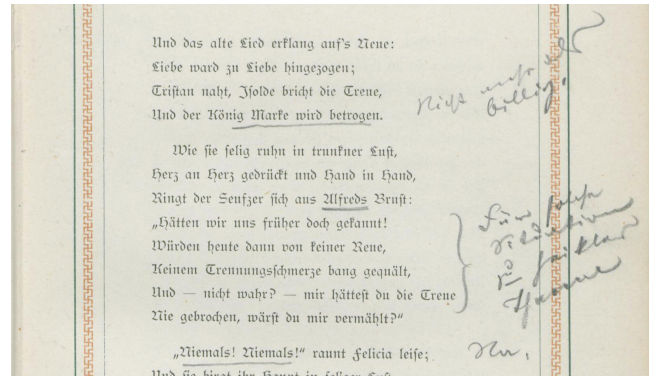 Und das alte Lied erklang auf's Neue:
Liebe ward zu Liebe hingezogen;
Tristan naht, Isolde bricht die Treue,
Und der König Marke wird betrogen.
Nicht mehr als
billig.
Wie sie selig ruhn in trunkner Lust,
Herz an Herz gedrückt und Hand in Hand,
Ringt der Seufzer sich aus Alfreds Brust:
„Hätten wir uns früher doch gekannt!
Würden heute dann von keiner Reue,
Keinem Trennungsschmerze bang gequält,
Und — nicht wahr? — mir hättest du die Treue
Nie gebrochen, wärst du mir vermählt?“
Für solche
Situation
„Niemals! Niemals!“ raunt Felicia leise;
Na,
Und sie birgt ihr Haupt in seliger Lust